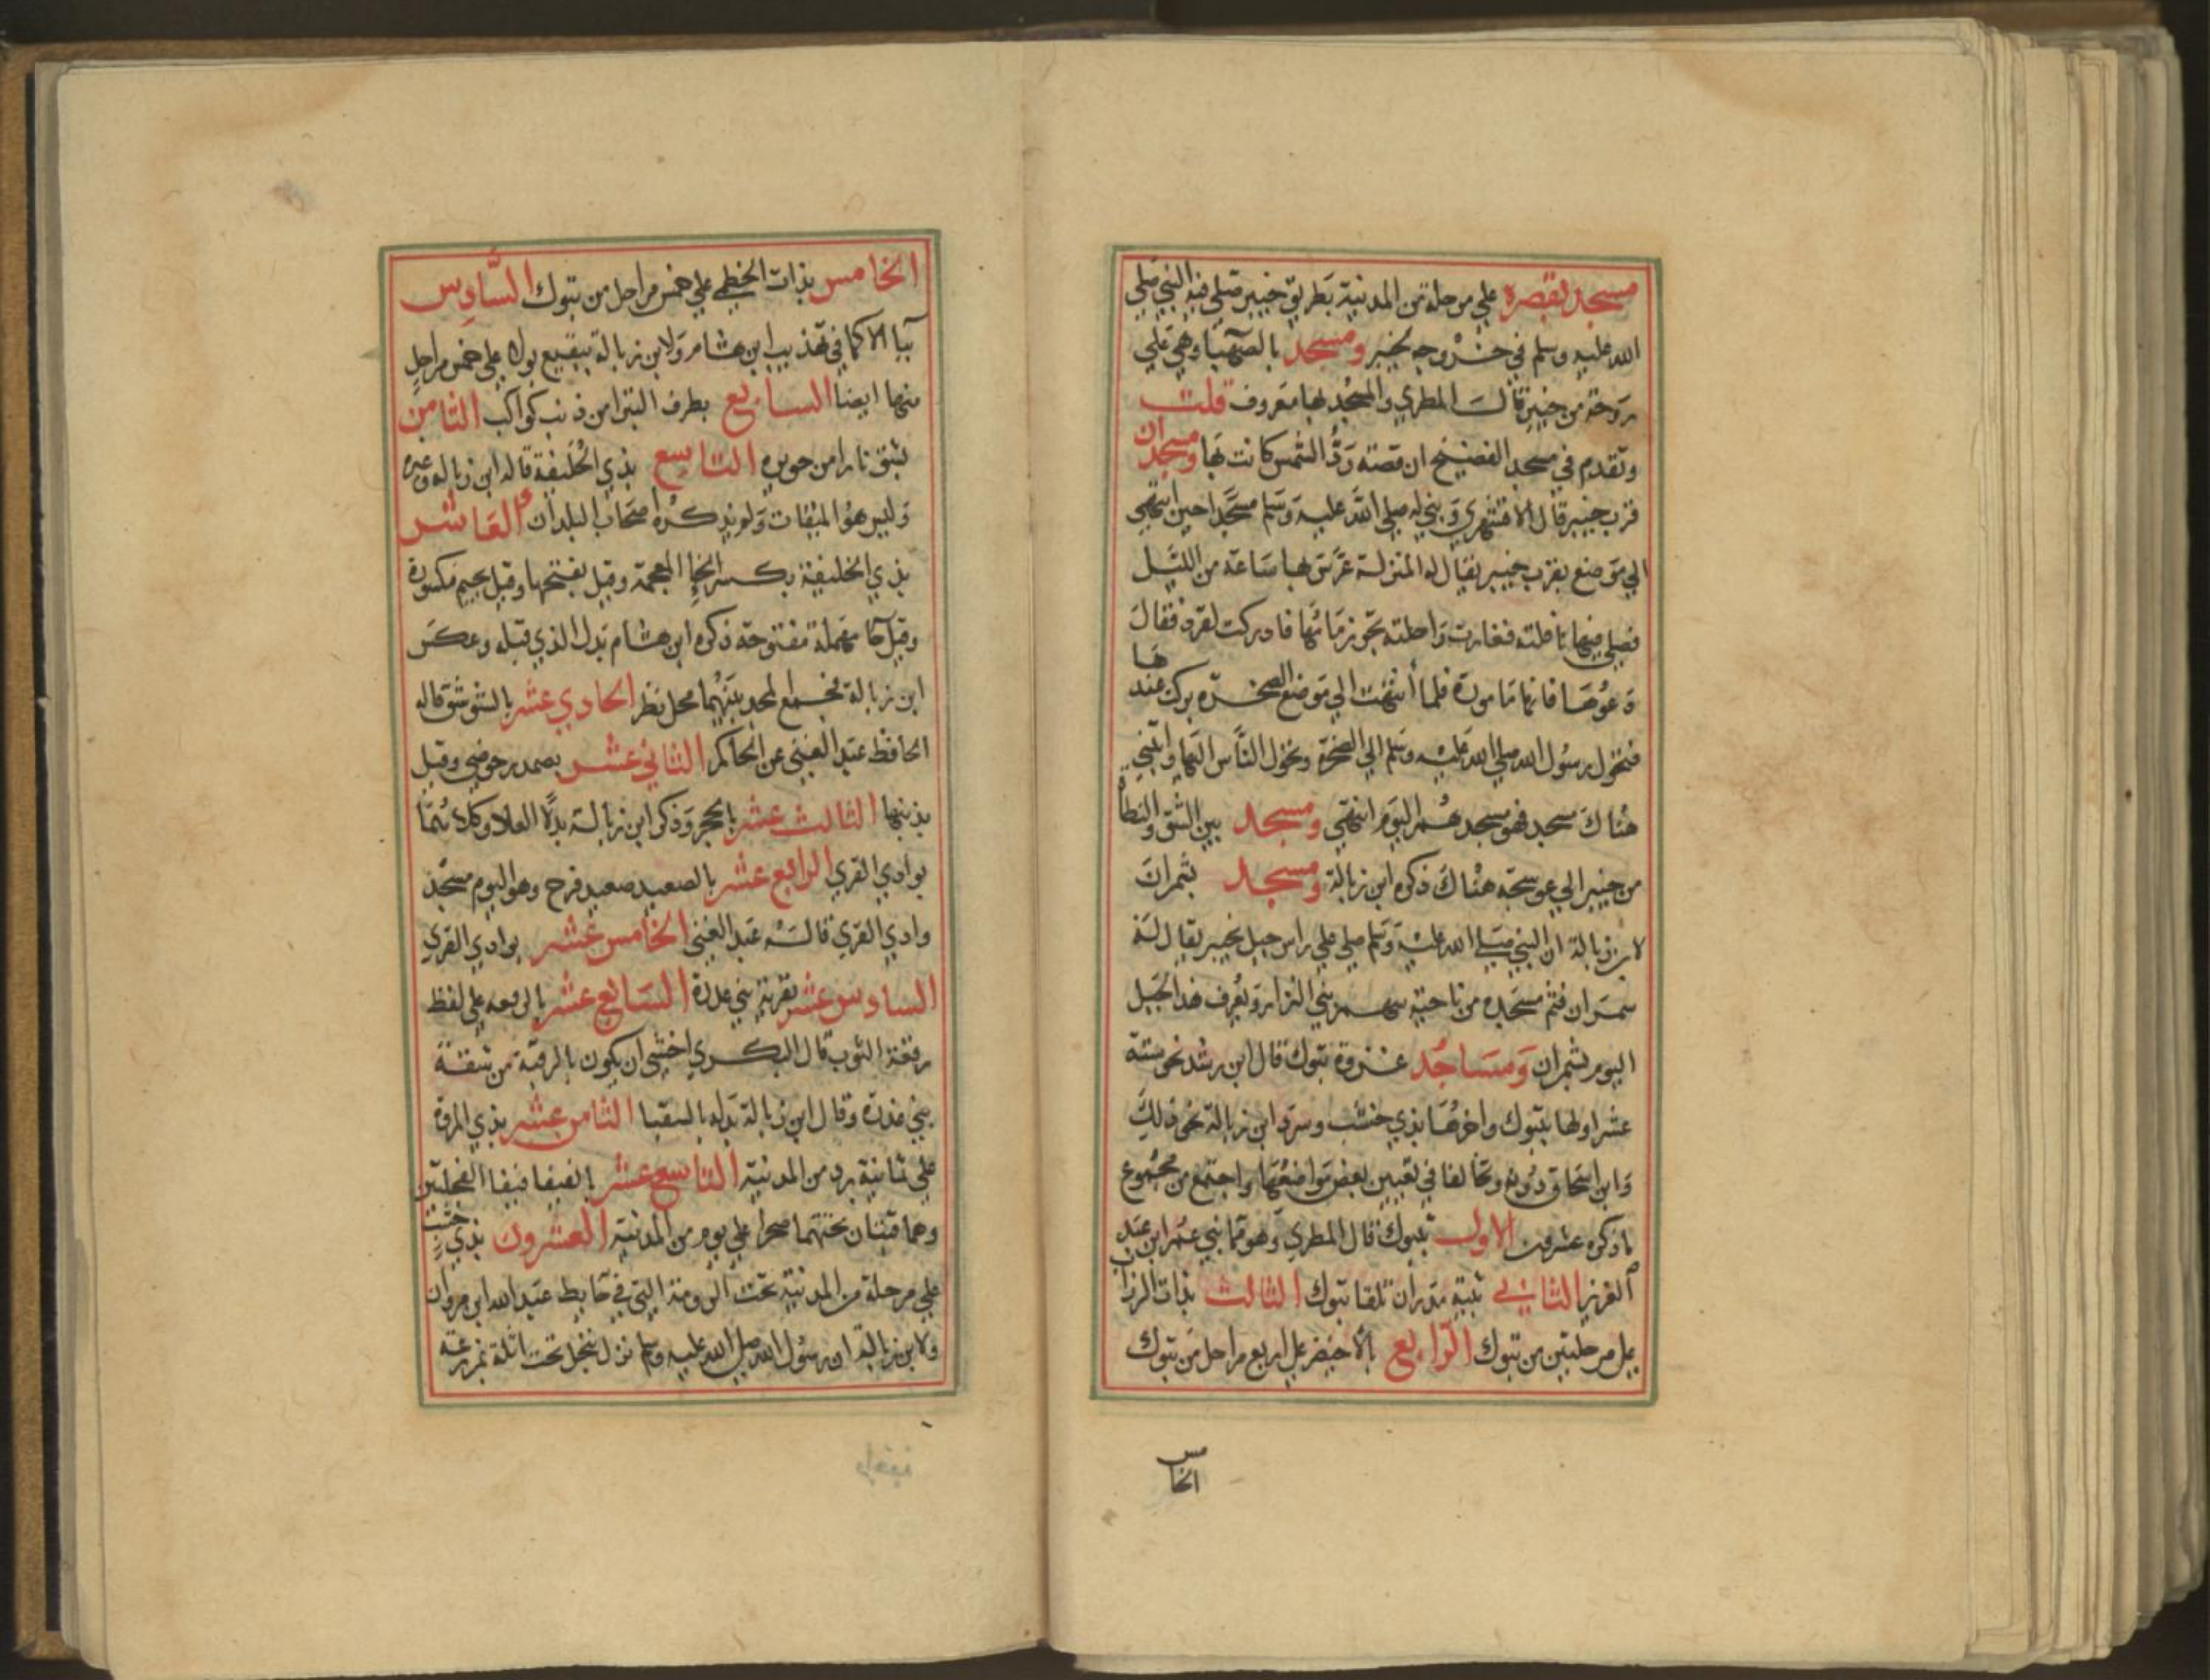 مسجد بقصره علي مرحلة من المدينة بطريق خيبر صلي فيه النبي صلي
الله عليه وسلم في خروجه لخيبر ومسجد بالصهبا وهي علي
روحة من خيبر قالـ المطري والمسجد بها معروف قلت
وتقدم في مسجد الفضيخ ان قصته ردّ الشمس كانت بها ومسجدان
قرب خيبر قال الاقشهري وبني له صلي الله عليه وسلم مسجدا حين انتهي
الي موضع بقرب خيبر يقال له المنزلة عرس بها ساعة من الليل
فصلي فيها نافلته فغارت راحلته تجر زمامها فادركت لترد فقال
دعوها فانها مامورة فلما انتهت الي موضع الصخرة بركت عندها
فتحول رسول الله صلي الله عليه وسلم الي الصخرة وتحول الناس اليها وابتني
هناك مسجد فهو مسجدهم اليوم انتهي ومسجد بين الشق والنطاه
من خيبر الي عوسجة هناك ذكره ابن زبالة ومسجد بشمران
لابن زبالة ان النبي صلي الله عليه وسلم صلي علي راس جبل بخيبر يقال له
سمران فثم مسجده من ناحية سهم بني النزار ويعرف هذا الجبل
اليوم بشمران ومساجد غزوة تبوك قال ابن رشد نحو ستة
عشر اولها بتبوك واخرها بذي خشب وسرد ابن زبالة نحو ذلك
وابن اسحاق دونه وتخالفا في تعيين بعض مواضعها واجتمع من مجموع
ما ذكره عشرون الاول بتبوك قال المطري وهو مما بني عمر ابن عبد
العزيز الثاني بثنية مدران تلقا تبوك الثالث بذات الزراب
علي مرحلتين من تبوك الرابع بالاخضر علي اربع مراحل من تبوك
الخامس
الخامس بذات الخطمي علي خمس مراحل من تبوك السادس
ببا الا كما في تهذيب ابن هشام ولابن زبالة ببقيع بولا علي خمس مراحل
منها ايضا السابع بطرف البترا من ذنب كواكب الثامن
بشق تارا من جوبره التاسع بذي الحليفة قاله ابن زباله وغيره
وليس هو الميقات ولم يذكره اصحاب البلدان العاشر
بذي الخليفة بكسر الخا المعجمة وقيل بفتحها وقيل بجيم مكسورة
وقيل حا مهملة مفتوحة ذكره ابن هشام بدل الذي قبله وعكس
ابن زبالة فجمع المجد بينهما محل نظر الحادي عشر بالشوشق قاله
الحافظ عبد الغني عن الحاكم الثاني عشر بصدر حوضي وقيل
بذنبها الثالث عشر بالحجر وذكر ابن زبالة بدله العلا وكلاهما
بوادي القري الرابع عشر بالصعيد صعيد قرح وهو اليوم مسجد
وادي القري قالـه عبد الغني الخامس عشر بوادي القري
السادس عشر بقرية بني عذرة السابع عشر بالرقعه علي لفظ
رقعة الثوب قال البكري اخشي ان يكون بالرقبة من شقة
بني عذرة وقال ابن زبالة بدله بالسقيا الثامن عشر بذي المروة
علي ثمانية برد من المدينة التاسع عشر بالفيفا فيفا الفحلتين
وهما قنتان تحتهما صحرا علي يوم من المدينة العشرون بذي خشب
علي مرحلة من المدينة تحت الدومة التي في حايط عبد الله ابن مروان
ولابن زبالة ان رسول الله صلي الله عليه وسلم نزل بنخل تحت اثلة بمزرعة